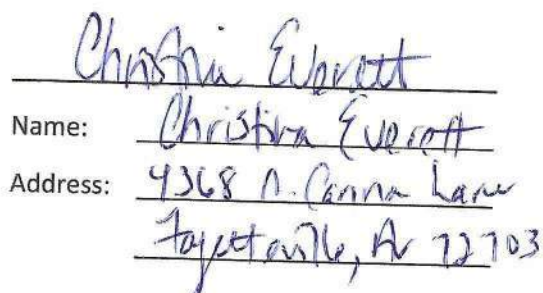 Christina Everett
Name: Christina Everett
Address: 4368 N. Canna Lane
Fayetteville, Ar 72703